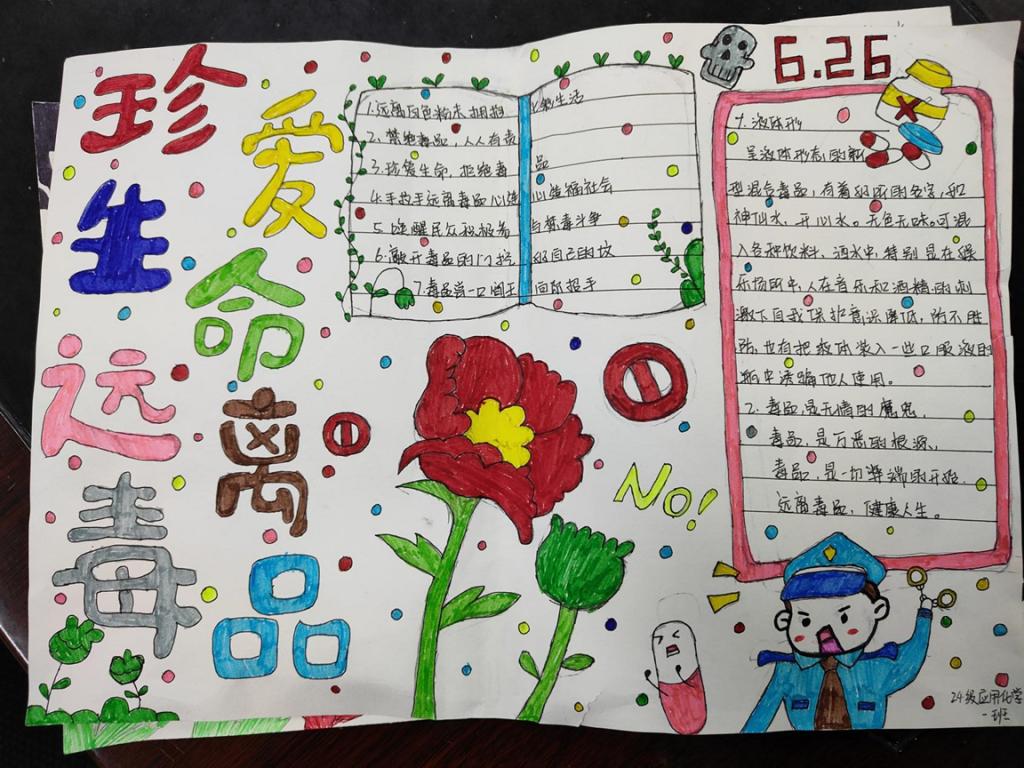 珍爱
生命
远离
毒品
1.远离白色粉末 拥抱七彩生活
2.禁绝毒品,人人有责
3.珍爱生命,拒绝毒品
4.手拉手远离毒品 心连心造福社会
5.唤醒民众积极参与禁毒斗争
6.敞开毒品的门 挖好自己的坟
7.毒品尝一口 阎王向你招手
6.26
1.液体形
呈液体形态的新
型混合毒品,有着好听的名字,如
神仙水、开心水。无色无味。可混
入各种饮料、酒水中,特别是在娱
乐场所中,人在音乐和酒精的刺
激下自我保护意识降低,防不胜
防。也有把液体装入一些口服液的
瓶中诱骗他人使用。
2.毒品,是无情的魔鬼,
毒品,是万恶的根源、
毒品,是一切弊端的开始.
远离毒品,健康人生。
NO!
24级应用化学
一班